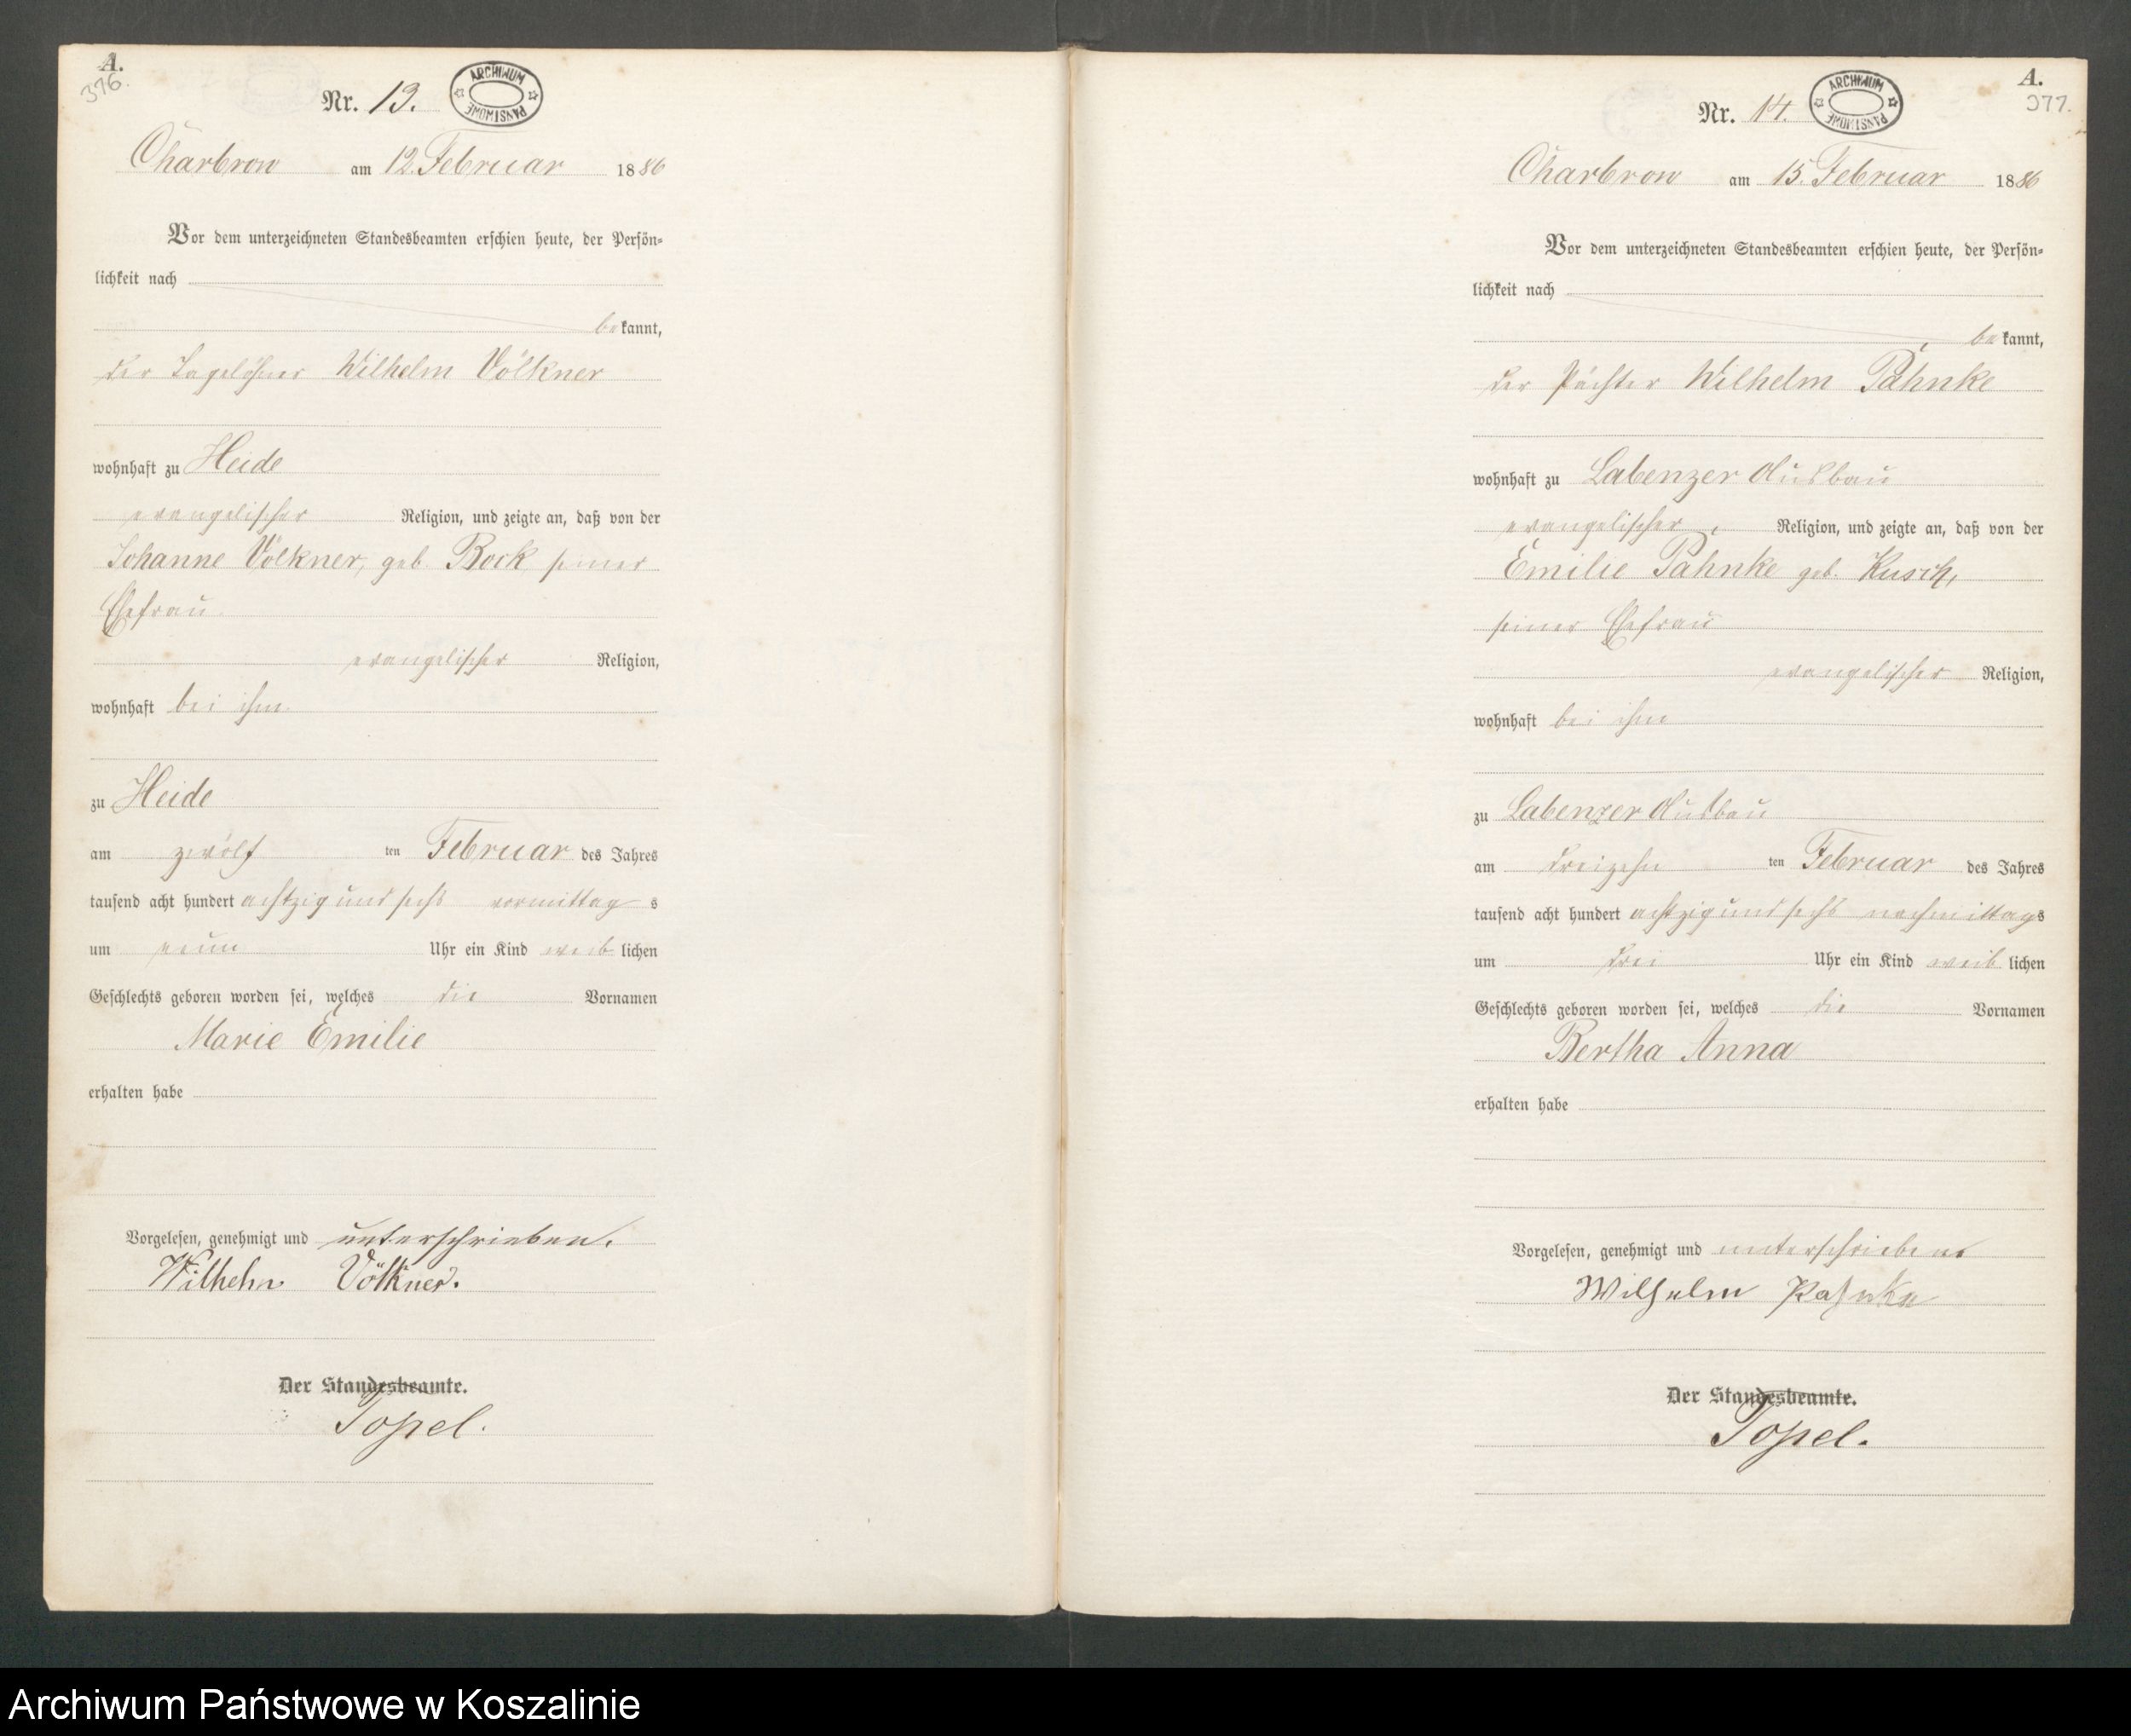 A.
376.
Nr. 13.
ARCHIWUM PAŃSTWOWE
Charbrow am 12. Februar 1886
Vor dem unterzeichneten Standesbeamten erschien heute, der Persön-
lichkeit nach
bekannt,
der Tagelöhner Wilhelm Völkner
wohnhaft zu Heide
evangelischer Religion, und zeigte an, daß von der
Johanne Völkner, geb. Bock, seiner
Ehefrau
evangelischer Religion,
wohnhaft bei ihm
zu Heide
am zwölf ten Februar des Jahres
tausend acht hundert achtzig und sechs vormittags
um neun Uhr ein Kind weiblichen
Geschlechts geboren worden sei, welches die Vornamen
Marie Emilie
erhalten habe
Vorgelesen, genehmigt und unterschrieben.
Wilhelm Völkner.
Der Standesbeamte.
Topel.
A.
377.
Nr. 14.
ARCHIWUM PAŃSTWOWE
Charbrow am 15. Februar 1886
Vor dem unterzeichneten Standesbeamten erschien heute, der Persön-
lichkeit nach
bekannt,
der Pächter Wilhelm Pahnke
wohnhaft zu Labenzer Ausbau
evangelischer Religion, und zeigte an, daß von der
Emilie Pahnke geb. Kusch,
seiner Ehefrau
evangelischer Religion,
wohnhaft bei ihm
zu Labenzer Ausbau
am dreizehn ten Februar des Jahres
tausend acht hundert achtzig und sechs nachmittags
um drei Uhr ein Kind weiblichen
Geschlechts geboren worden sei, welches die Vornamen
Bertha Anna
erhalten habe
Vorgelesen, genehmigt und unterschrieben
Wilhelm Pahnke
Der Standesbeamte.
Topel.
Archiwum Państwowe w Koszalinie